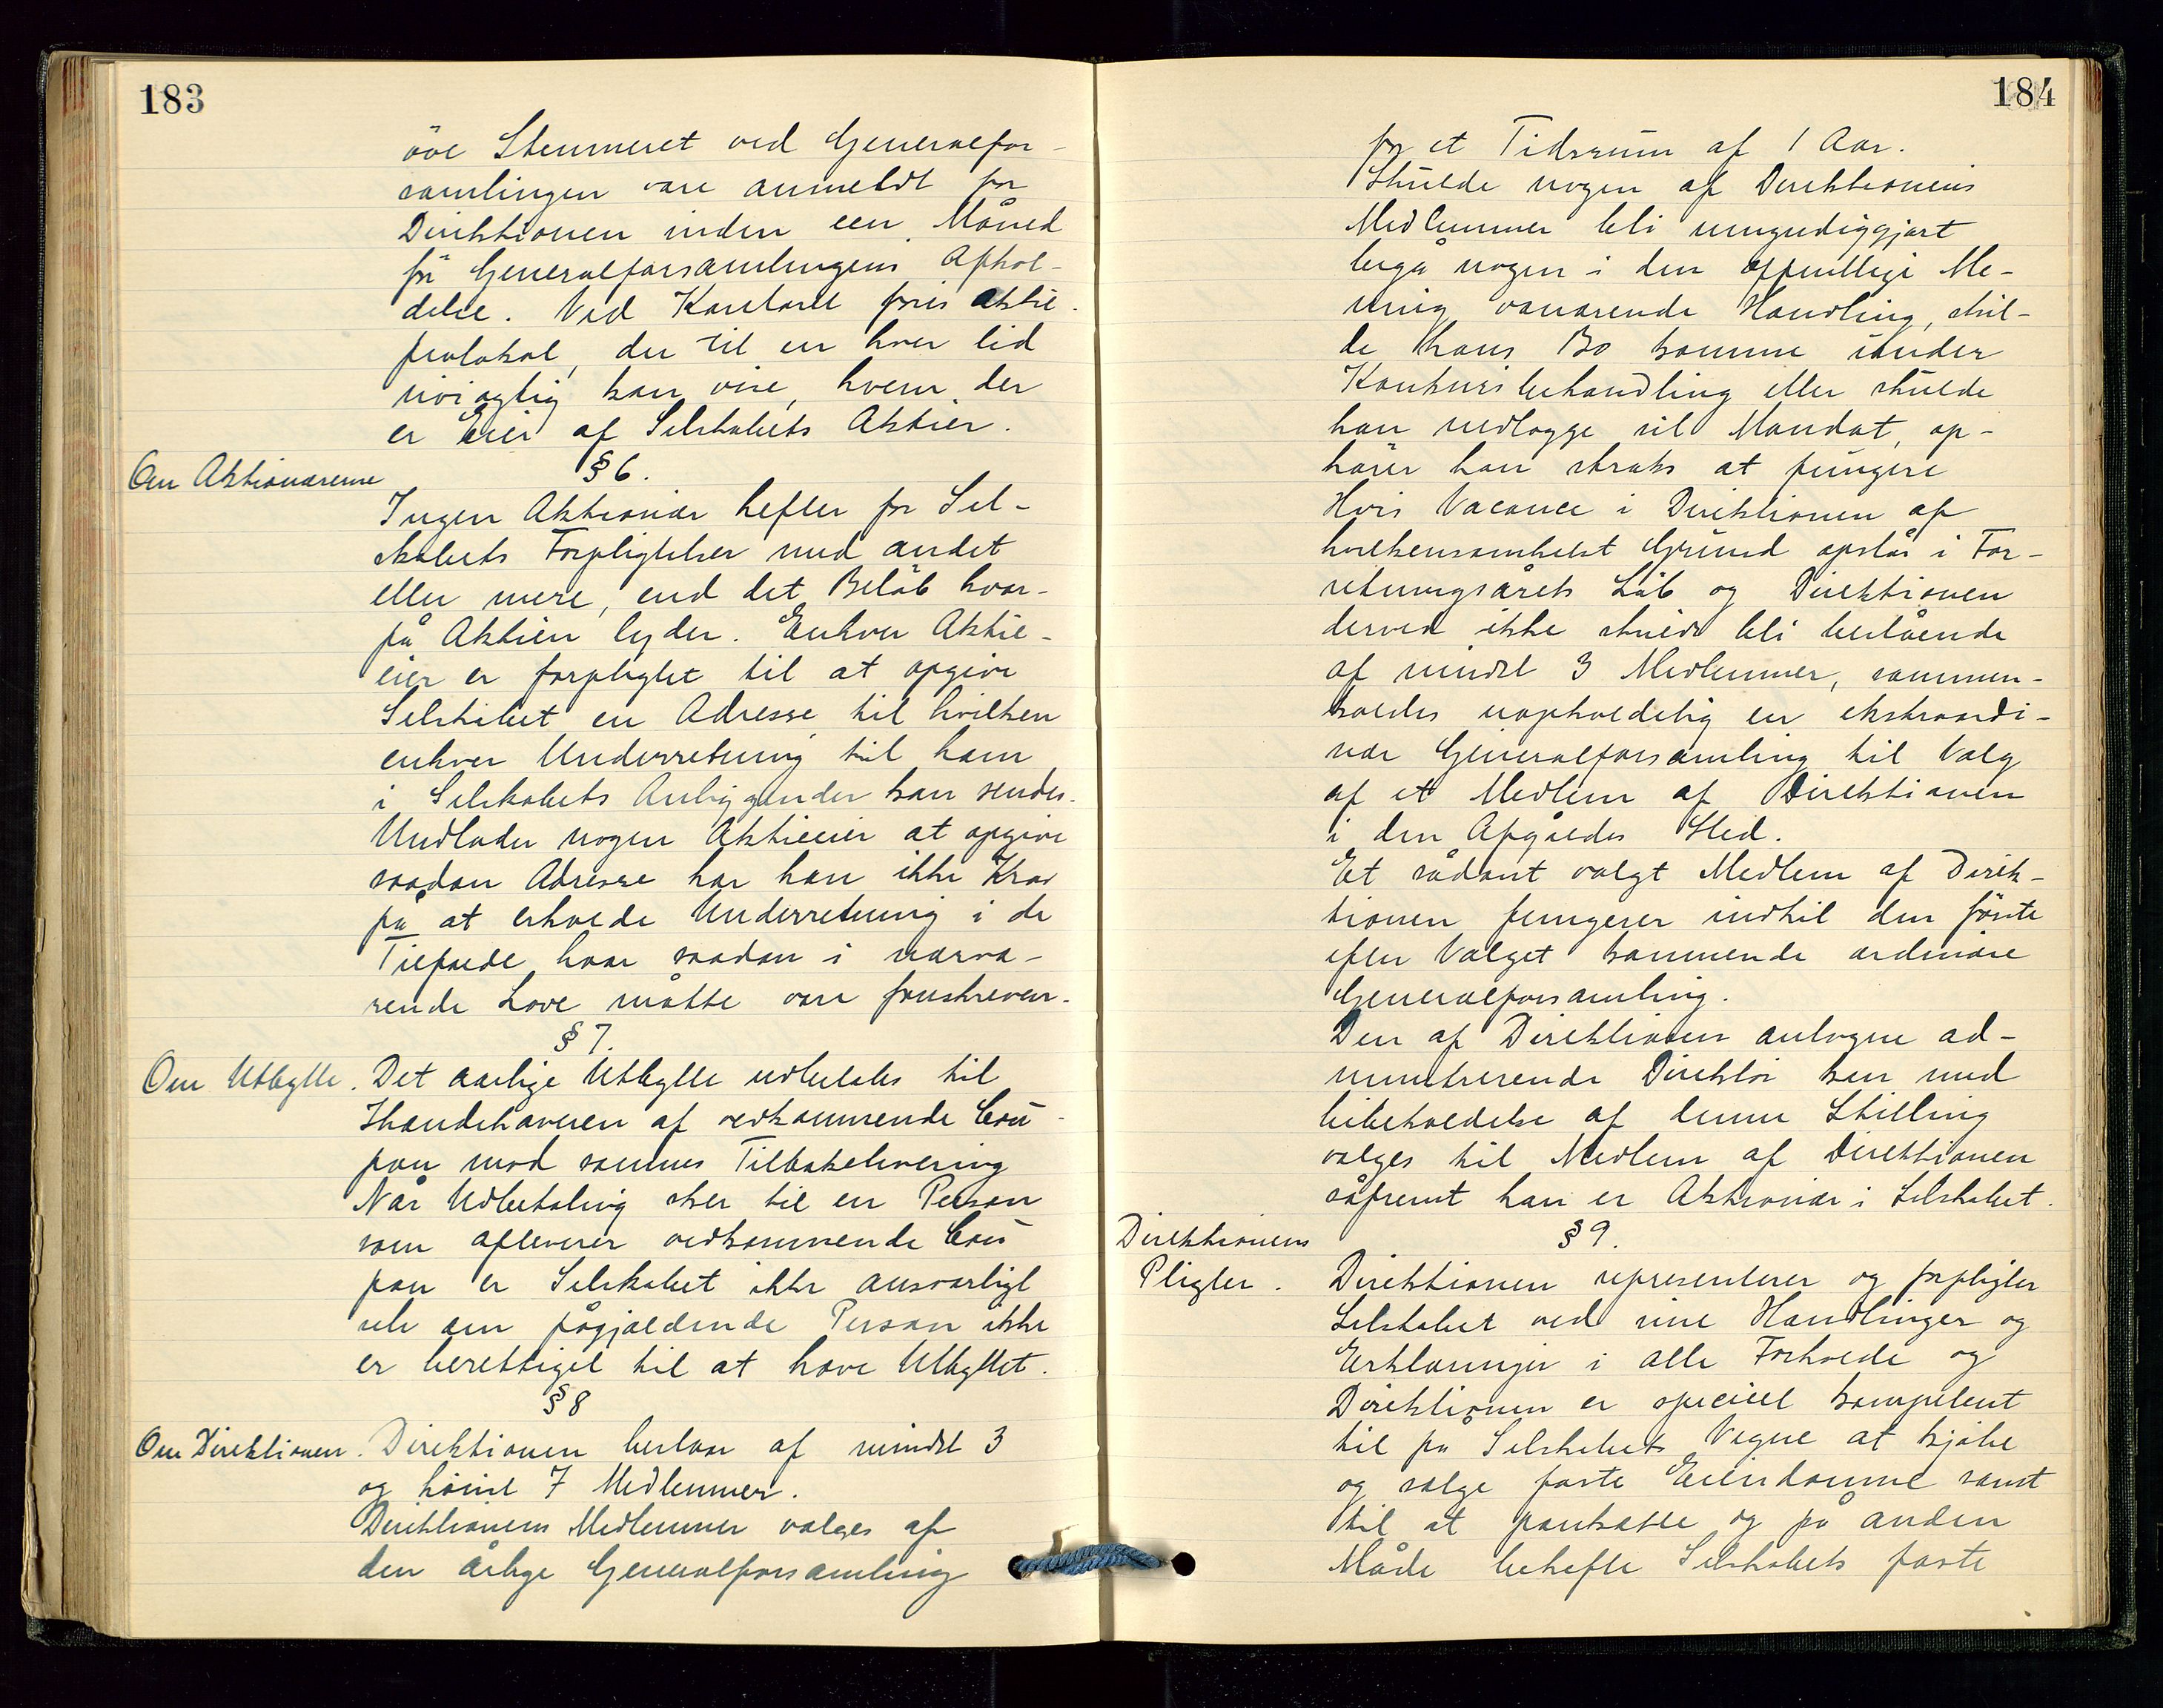 183
öve Stemmeret ved Generalfor-
samlingen være anmeldt for
Direktionen inden een Måned
för Generalforsamlingens Afhol-
delse. Ved Kontoret föres Aktie-
protokol, der til en hver tid
nöiagtig kan vise, hvem der
er Eier af Selskabets Aktier.
Om Aktionærerne
§ 6.
Ingen Aktionær hefter for Sel-
skabets Forpligtelser med andet
eller mere, end det Belöb hvor-
på Aktien lyder. Enhver Aktie-
eier er forpligtet til at opgive
Selskabet en Adresse til hvilken
enhver Underretning til ham
i Selskabets Anliggender kan sendes.
Undlader nogen Aktieeier at opgive
saadan Adresse har han ikke Krav
på at erholde Underretning i de
Tilfælde hvor saadan i nærvæ-
rende Love måtte være foreskreven.
§ 7.
Om Utbytte.
Det aarlige Utbytte udbetales til
Ihændehaveren af vedkommende Cou-
pon mod sammes Tilbakelevering
Når Udbetaling sker til en Person
som afleverer vedkommende Cou
pon er Selskabet ikke ansvarligt
selv om pågjældende Person ikke
er berettiget til at hæve Utbyttet.
§ 8
Om Direktionen.
Direktionen bestaar af mindst 3
og höist 7 Medlemmer.
Direktionens Medlemmer vælges af
den årlige Generalforsamling
184
for et Tidsrum af 1 Aar.
Skulde nogen af Direktionens
Medlemmer bli umyndiggjort
begå nogen i den offentlige Me-
ning vanærende Handling, skul-
de hans Bo komme under
Konkursbehandling eller skulde
han nedlægge sit Mandat, op-
hörer han straks at fungere
Hvis Vacance i Direktionen af
hvilkensomhelst Grund opstår i For-
retningsårets Löb og Direktionen
derved ikke skulde bli bestående
af mindst 3 Medlemmer, sammen-
kaldes uopholdelig en ekstraordi-
nær Generalforsamling til Valg
af et Medlem af Direktionen
i den Afgåedes Sted.
Et sådant valgt Medlem af Direk-
tionen fungerer indtil den förste
efter Valget kommende ordinære
Generalforsamling.
Den af Direktionen antagne ad-
ministrerende Direktör kan med
bibeholdelse af denne Stilling
vælges til Medlem af Direktionen
såfremt han er Aktionær i Selskabet.
Direktionens
Pligter.
§ 9.
Direktionen representerer og forpligter
Selskabet ved sine Handlinger og
Erklæringer i alle Forholde og
Direktionen er specielt kompetent
til på Selskabets Vegne at kjöbe
og sælge faste Eiendomme samt
til at pantsætte og på anden
Måde behefte Selskabets faste